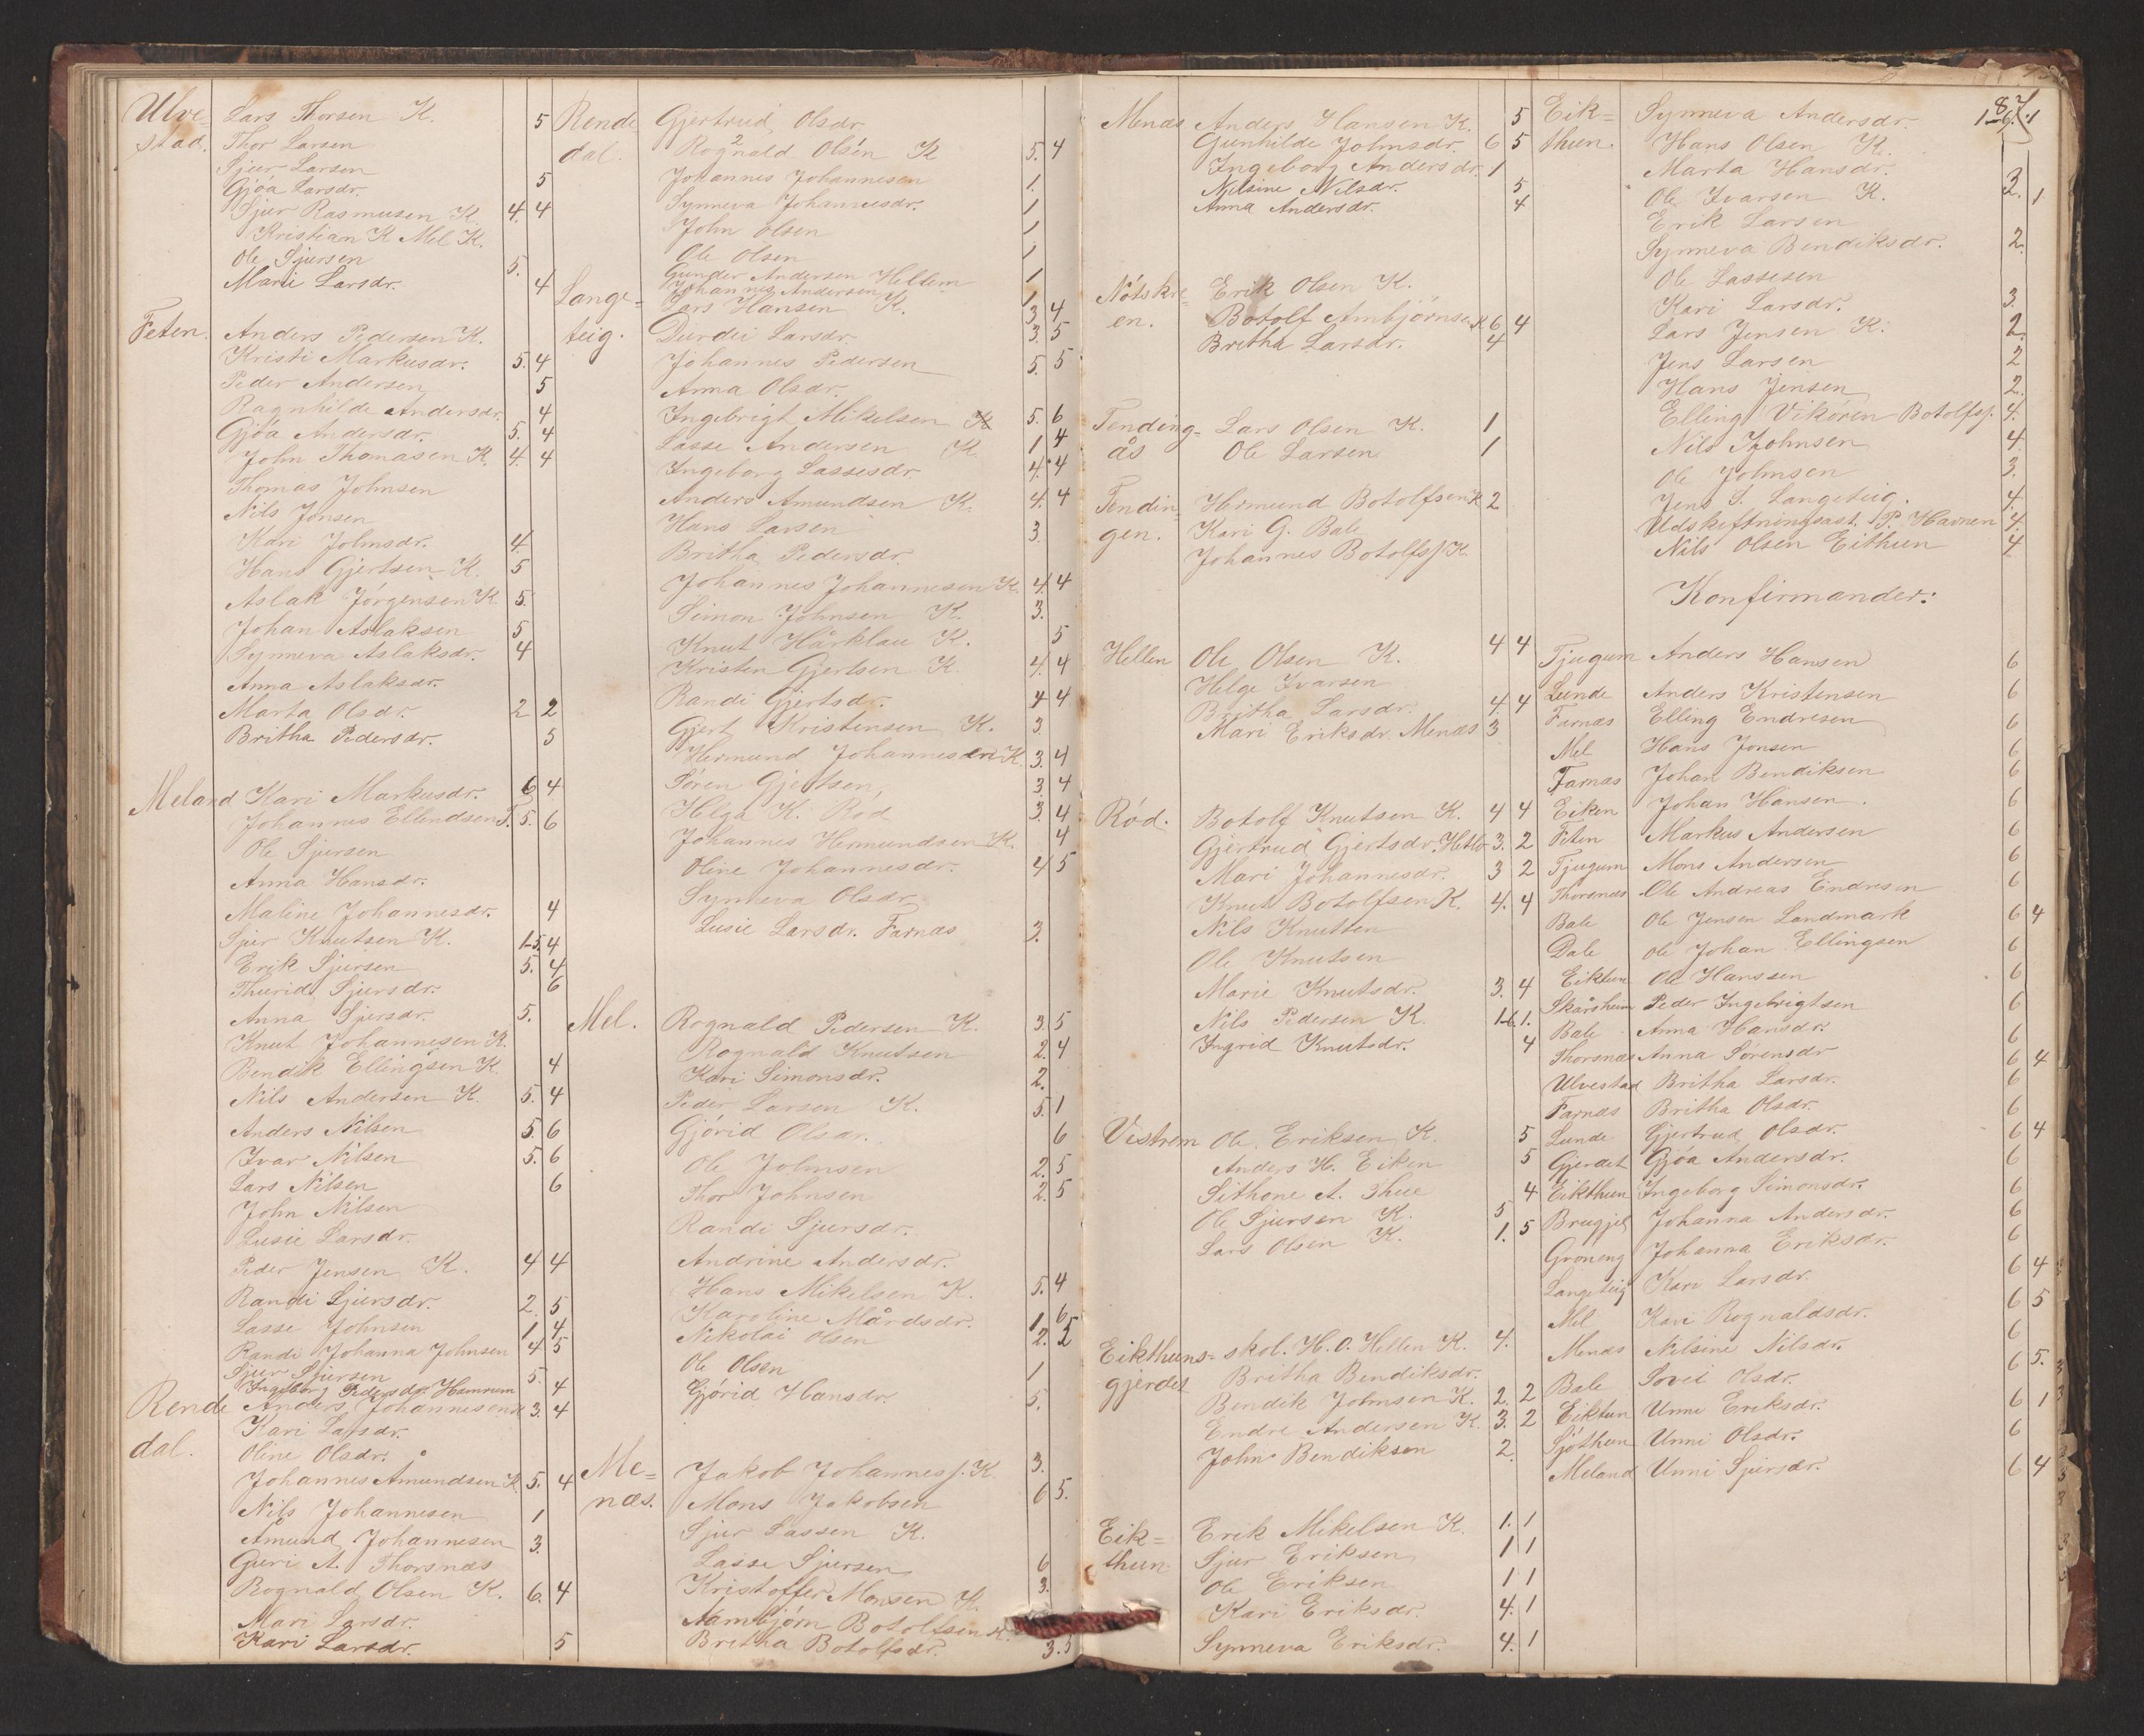 Ulve- Lars Thorsen K. 5
stad. Thor Larsen
Sjur Larsen
Gjöa Larsdr. 5
Sjur Rasmusen K. 4. 4
Kristian K Mel K.
Ole Sjursen 5.
Marie Larsdr. 4
Feten. Anders Pedersen K.
Kristi Markusdr. 5. 4
Peder Andersen 5
Ragnhilde Andersdr. 4
Gjöa Andersdr. 5. 4
John Thomasen K. 4. 4
Thomas Johnsen
Nils Jonsen
Kari Johnsdr. 4.
Hans Gjertsen K. 5
Aslak Jörgensen K 5.
Johan Aslaksen 5
Synneva Aslaksdr. 4
Anna Aslaksdr.
Marta Olsdr. 2 2
Britha Pedersdr. 5
Meland Kari Markusdr. 6 4
Johannes Ellendsen 5. 6
Ole Sjursen
Anna Hansdr.
Maline Johannesdr. 4
Sjur Knutsen K. 1-5. 4
Erik Sjursen 5. 4
Thurid Sjursdr. 6
Anna Sjursdr. 5.
Knut Johannesen K.
Bendik Ellingsen K. 4
Nils Andersen K. 5. 4
Anders Nilsen 5. 6
Ivar Nilsen 5. 6
Lars Nilsen 6
John Nilsen
Lusie Larsdr.
Peder Jensen K. 4 4
Randi Sjursdr. 2. 5
Lasse Johnsen 1. 4
Randi Johanna Johnsen 4 5
Sjur Sjursen 5.
Ingeborg Pedersdr. Hamrum 4
Rende Anders Johannesen K 3. 4
Kari Larsdr.
dal. Oline Olsdr.
Johannes Amundsen K. 5. 4
Nils Johannesen 1
Amund Johannesen 3.
Guri A. Thorsnæs
Rognald Olsen K. 6. 4
Mari Larsdr.
Kari Larsdr. 5
Rende Gjertrud Olsdr
dal. Rognald Olsen K 5. 4
Johannes Johannesen 1.
Synneva Johannesdr. 1
John Olsen 1
Ole Olsen 1
Gunder Andersen Hellem 1
Johannes Andersen 1
Lange- Lars Hansen K. 3 4
teig. Durdei Larsdr 3. 5
Johannes Pedersen 5. 5
Anna Olsdr.
Ingebrigt Mikelsen K 5. 6
Lasse Andersen K. 1 4
Ingeborg Lassesdr. 4. 4
Anders Amundsen K. 4. 4
Hans Larsen 3.
Britha Pedersdr.
Johannes Johannesen K. 4. 4
Simon Johnsen K. 3.
Knut Hårklau K. 5
Kristen Gjertsen K 4. 4
Randi Gjertsdr. 4 4
Gjert Kristensen K. 3.
Hermund Johannesen K. 3. 4
Sören Gjertsen, 3. 4
Helga K. Rod 3. 4
Johannes Hermundsen K. 4
Oline Johannesdr. 4 5
Synneva Olsdr
Lusie Larsdr. Farnæs 3.
Mel. Rognald Pedersen K. 3. 5
Rognald Knutsen 2. 4
Kari Simonsdr. 2.
Peder Larsen K. 5. 1
Gjórid Olsdr. 6
Ole Johnsen 2. 5
Thor Johnsen 2. 5
Randi Sjursdr.
Andrine Andersdr.
Hans Mikelsen K. 5. 4
Karoline Mårdsdr. 1. 6
Nikolai Olsen 2. 5
Ole Olsen 1
Gjórid Hansdr. 5.
Me- Jakob Johannesf. K. 3.
næs. Mons Jakobsen 6 5.
Sjur Lassen K.
Lasse Sjursen 6
Kristoffer Monsen K. 3.
Botolfsen K.
Britha Botolfsdr. 3. 5
Menæs Anders Hansen K. 5
Gunhilde Johnsdr. 6 5
Ingeborg Andersdr. 1
Nilsine Nilsdr. 5
Anna Andersdr. 4
Nótskre- Erik Olsen K.
en. Botolf Ambjörnsen K. 6 4
Britha Larsdr. 4
Tending- Lars Olsen K. 1
ås Ole Larsen 1
Tendin- Hermund Botolfsen K 2
gen. Kari G. Bale
Johannes Botolfsf K
Hellen Ole Olsen K. 4 4
Helge Ivarsen
Britha Larsdr. 4 4
Mari Eriksdr. Menæs 3
Ród. Botolf Knutsen K. 4 4
Gjertrud Gjertsdr. 3. 2
Mari Johannesdr. 3 2
Knut Botolfsen K. 4. 4
Nils Knutsen
Ole Knutsen
Marie Knutsdr. 3. 4
Nils Pedersen K. 1-6. 1.
Ingrid Knutsdr. 4
Vistrem Ole Eriksen K. 5
Anders H. Eiken 5
Sithone A. Thue 4
Ole Sjursen K. 5
Lars Olsen K. 1. 5
Eikthuns- skol. H. O. Hellen K. 4.
gjerdet Britha Bendiksdr.
Bendik Johnsen K. 2. 2
Endre Andersen K. 3. 2
John Bendiksen 2.
Eik- Erik Mikelsen K. 1. 1
thun. Sjur Eriksen 1 1
Ole Eriksen 1 1
Kari Eriksdr. 4. 1
Synneva Eriksdr. 4. 1
87
Eik- Synneva Andersdr. 1-6. 1
thun. Hans Olsen K.
Marta Hansdr. 3
Ole Ivarsen K. 2. 1
Erik Larsen
Synneva Bendiksdr. 2.
Ole Lassesen
Kari Larsdr. 3.
Lars Jensen K. 2.
Jens Larsen 2
Hans Jensen 2.
Elling Vikören Botolfsf. 4.
Nils Johnsen 4.
Ole Johnsen 3.
Jens S. Langeteig. 4.
Udskiftningsast. P. Havnen 4.
Nils Olsen Eithun 4
Konfirmander:
Tjugum Anders Hansen 6
Lunde Anders Kristensen 6
Furnæs Elling Endresen 6
Mel Hans Jonsen 6
Farnæs Johan Bendiksen 6
Eiken Johan Hansen. 6
Feten Markus Andersen 6
Tjugum Mons Andersen 6
Thorsnæs Ole Andreas Endresen 6
Bale Ole Jensen Landmark 6 4
Dale Ole Johan Ellingsen 6
Eiktun Ole Hanssen 6
Skårsheim Peder Ingebrigtsen 6
Bale Anna Hansdr. 6
Thorsnæs Anna Sörensdr 6 4
Ulvestad Britha Larsdr. 6
Farnæs Britha Olsdr. 6
Lunde Gjertrud Olsdr. 6 4
Gjerdet Gjöa Andersdr. 6
Eikthun Ingeborg Simonsdr. 6
Johanna Andersdr. 6
Gröneng Johanna Eriksdr. 6
Langeteig Kari Larsdr. 6 4
Mel Kari Rognaldsdr. 6 5
Menæs Nilsine Nilsdr. 6
Bale Sovei Olsdr. 6 5.
Eiktun Unni Eriksdr. 6 1
Sjöthun Unni Olsdr. 6
Meland Unni Sjursdr. 6 4